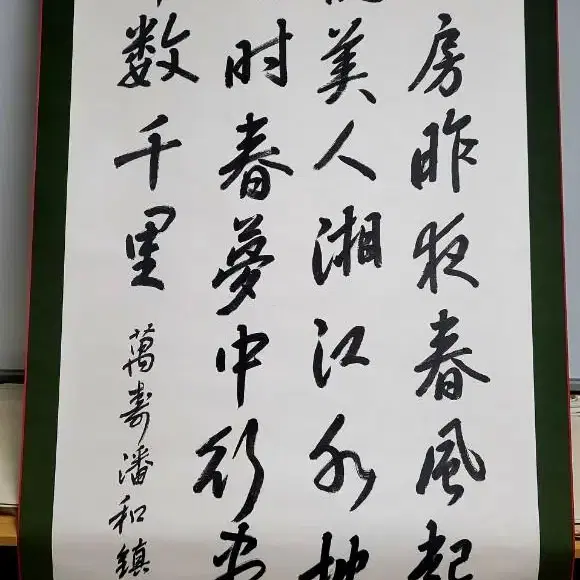 房昨夜春風起
美人湘江水枕
时春夢中行
数千里
萬壽潘和鎮